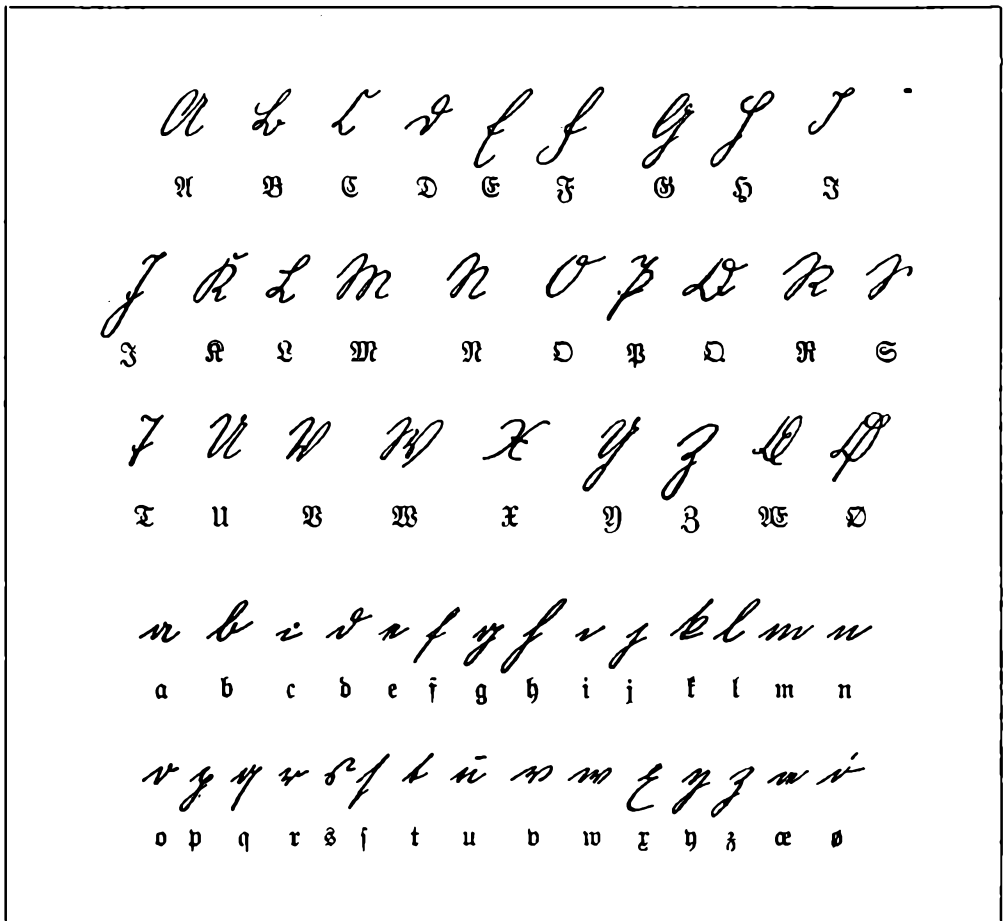 A B C D E F G H I
A B C D E F G H I
J K L M N O P Q R S
J K L M N O P Q R S
T U V W X Y Z Æ Ø
T U V W X Y Z Æ Ø
a b c d e f g h i j k l m n
a b c d e f g h i j k l m n
o p q r s ſ t u v w x y z æ ø
o p q r s ſ t u v w x y z æ ø